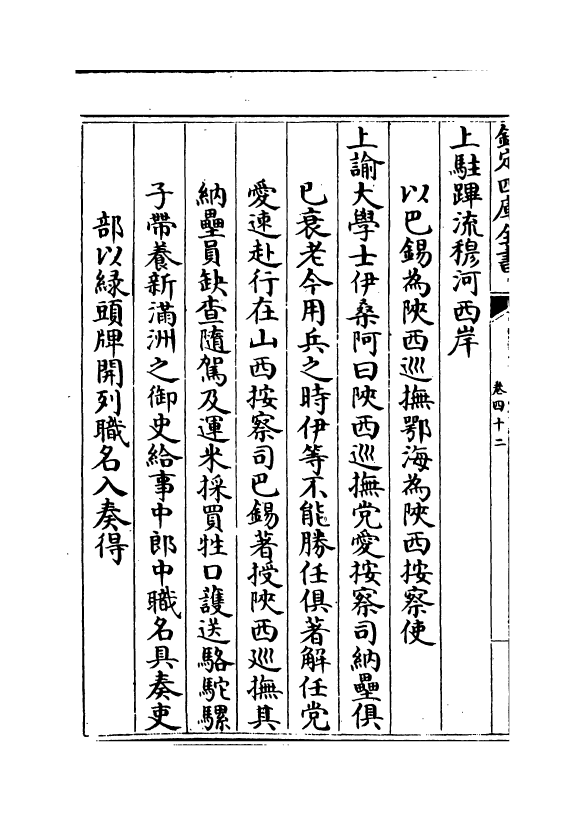 欽定四庫全書
卷四十二
上駐蹕流穆河西岸
以巴錫為陝西巡撫鄂海為陝西按察使
上諭大學士伊桑阿曰陝西巡撫党愛按察司納壘俱
已衰老今用兵之時伊等不能勝任俱著解任党
愛速赴行在山西按察司巴錫著授陝西巡撫其
納壘員缺查隨駕及運米採買牲口護送駱駝騾
子帶養新滿洲之御史給事中郎中職名具奏吏
部以緑頭牌開列職名入奏得